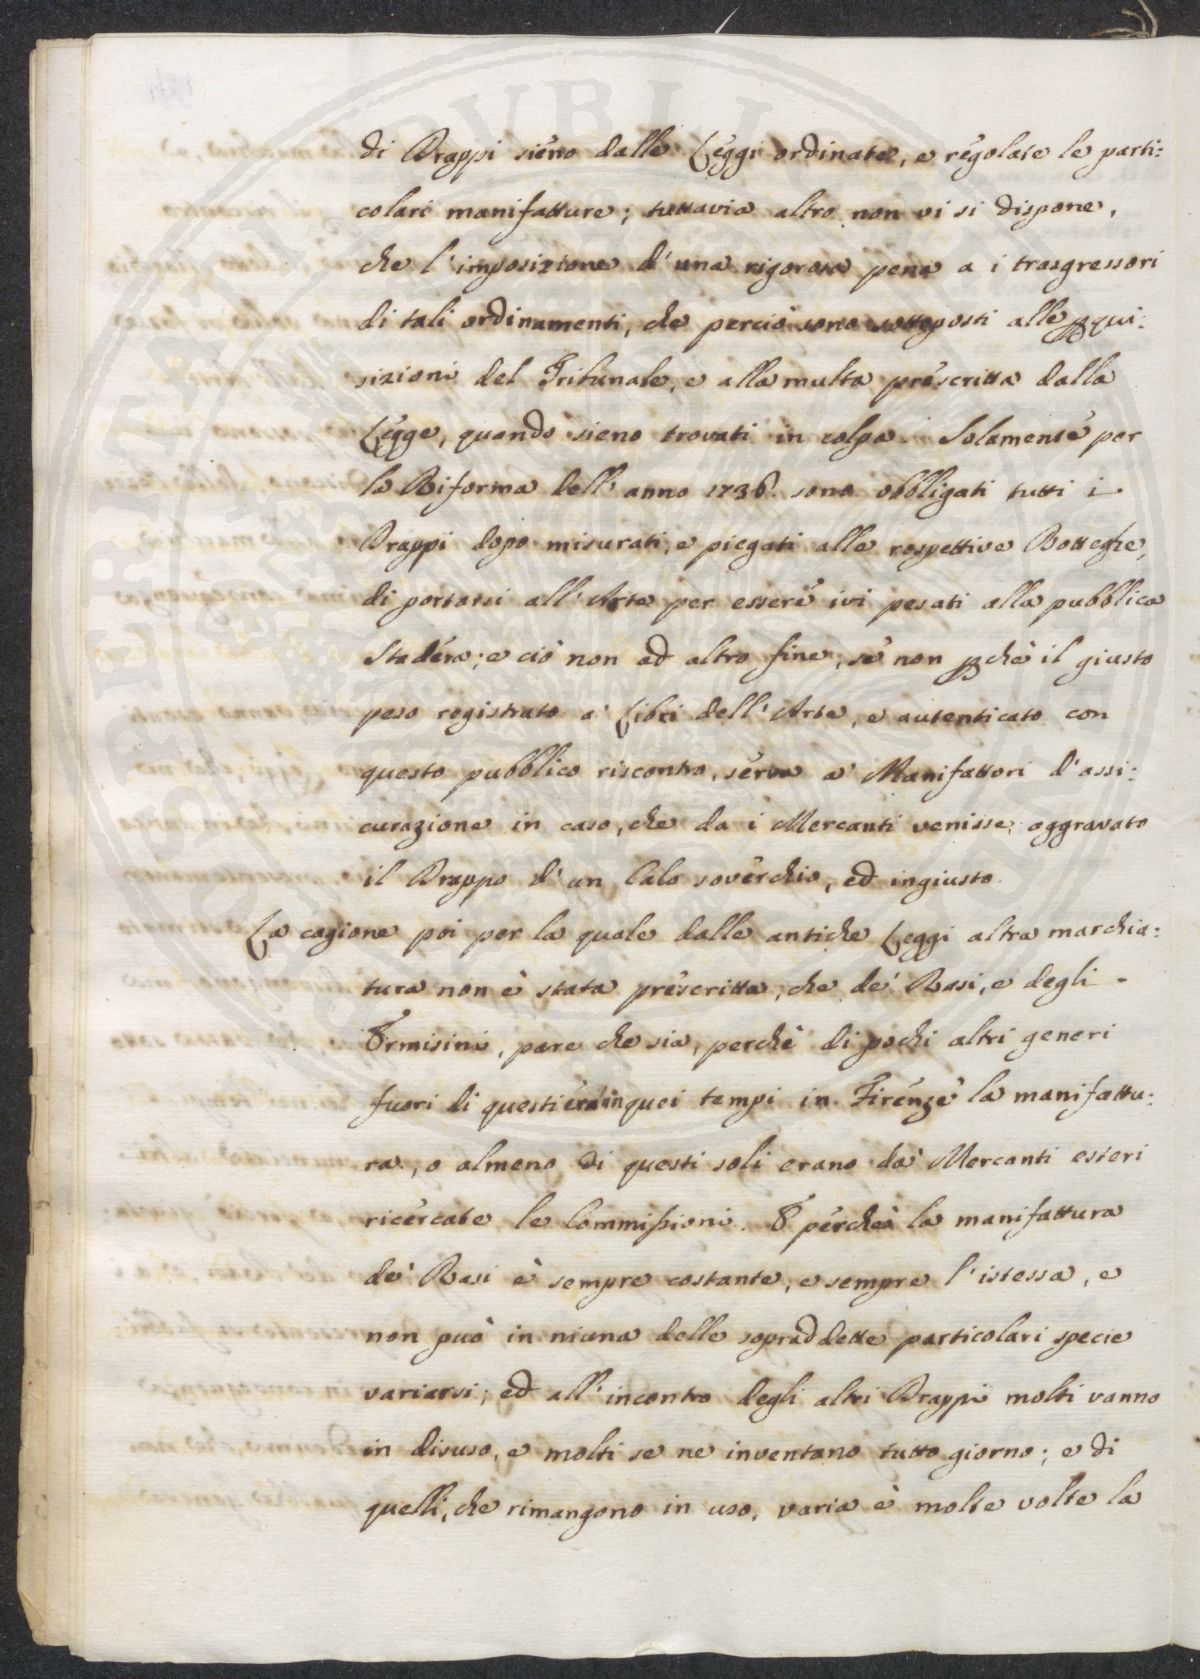 di Drappi sieno dalle Leggi ordinate, e regolate le parti:
colari manifatture; tuttavia altro non vi si dispone,
che l'imposizione d'una rigorosa pena a i trasgressori
di tali ordinamenti, che perciò sono sottoposti alle ꝑqui:
sizioni del Tribunale, e alla multa prescritta dalla
Legge, quando sieno trovati in colpa. Solamente per
la Riforma dell'anno 1736. sono obbligati tutti i
Drappi dopo misurati, e piegati alle respettive Botteghe,
di portarsi all'Arte per essere ivi pesati alla pubblica
Stadera; e ciò non ad altro fine, se non ꝑchè il giusto
peso registrato a' Libri dell'Arte, e autenticato con
questo pubblico riscontro, serva a' Manifattori d'assi:
curazione in caso, che da i Mercanti venisse aggravato
il Drappo d'un Calo soverchio, ed ingiusto.
La cagione poi per la quale dalle antiche Leggi altra marchia:
tura non è stata prescritta, che de' Rasi, e degli
Ermisini, pare che sia, perchè di pochi altri generi
fuori di questi era in quei tempi in Firenze la manifattu:
ra, o almeno di questi soli erano da' Mercanti esteri
ricercate le Commissioni. E perchè la manifattura
de' Rasi è sempre costante, e sempre l'istessa, e
non può in niuna delle sopraddette particolari specie
variarsi; ed all'incontro degli altri Drappi molti vanno
in disuso, e molti se ne inventano tutto giorno; e di
quelli, che rimangono in uso, varia è molte volte la